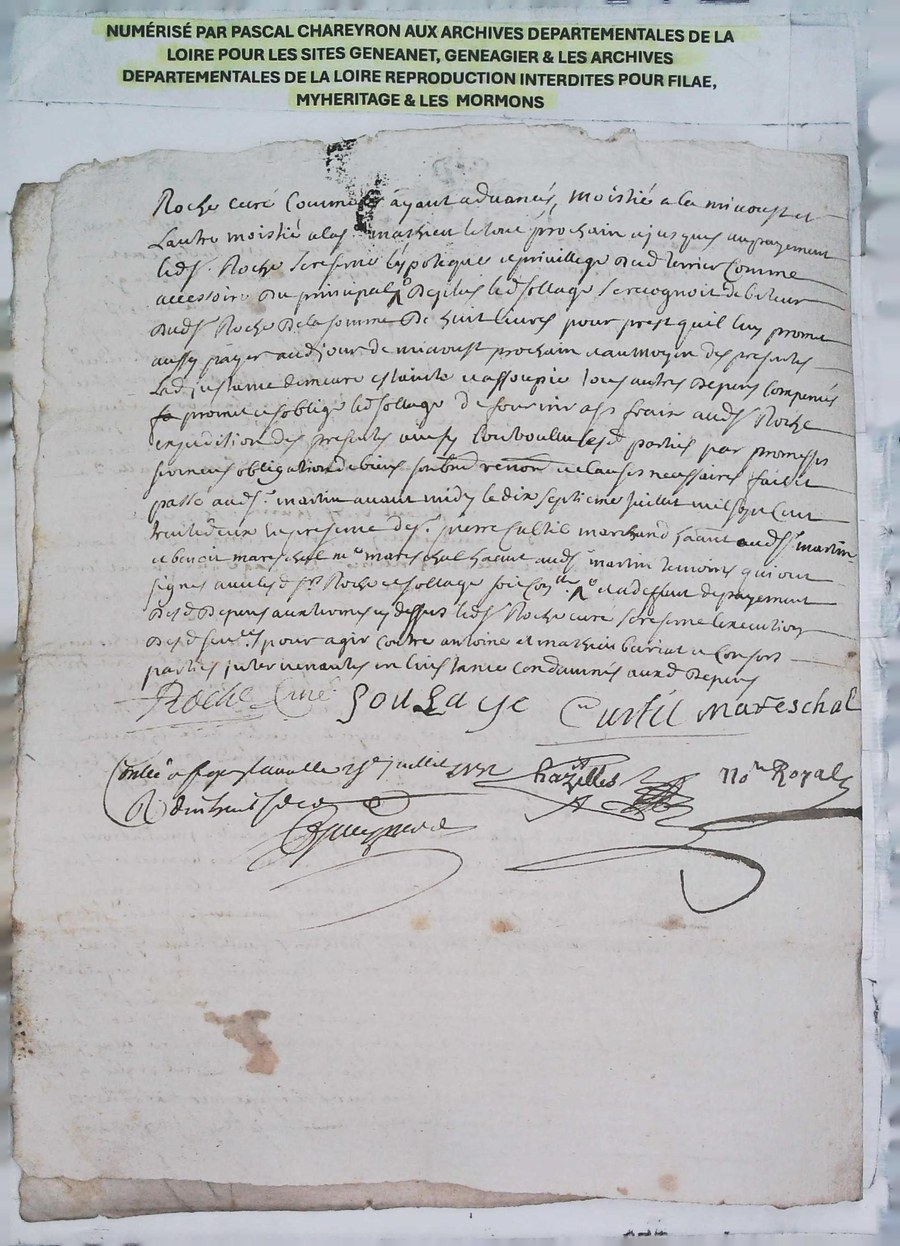 NUMÉRISÉ PAR PASCAL CHAREYRON AUX ARCHIVES DEPARTEMENTALES DE LA
LOIRE POUR LES SITES GENEANET, GENEAGIER & LES ARCHIVES
DEPARTEMENTALES DE LA LOIRE REPRODUCTION INTERDITES POUR FILAE,
MYHERITAGE & LES MORMONS
Roche curé comme ayant advancés, moistié a la miaoust et
Lautre moistié a la st mathieu le tout prochain et jusques au payement
ledt sr Roche se reserve lypoteque et privillege dud terrier comme
accessoire du principal de plus led sollage se recognoit debiteur
audt sr Roche de la somme de huit livres pour prest quil luy promet
aussy payer aud jour de miaoust prochain et au moyen des presentes
Lad instance demeure estainte et assoupie tous autres depens compensés
promet et soblige led sollage de fournir a ses frais audt sr Roche
expedition des presentes ainsy parties par promesses
obligation de biens renon et clauses necessaires fait et
passé audt st martin avant midy le dix septieme juillet mil sept cent
trente deux en presence de sr pierre Curtil marchand haant audt st martin
et benoit mareschal me mareschal haant audt st martin temoins qui ont
signés avec led sr Roche et sollage et a deffaut de payement
desd depens aux termes cy dessus ledt sr Roche curé se reserve lexecution
desd pour agir contre antoine et mathieu et consort
parties intervenantes en linstance condamnés auxd depens
Roche Curé Soulage Curtil mareschal
Conlée a juillet 1732 Chazelles No re Royal